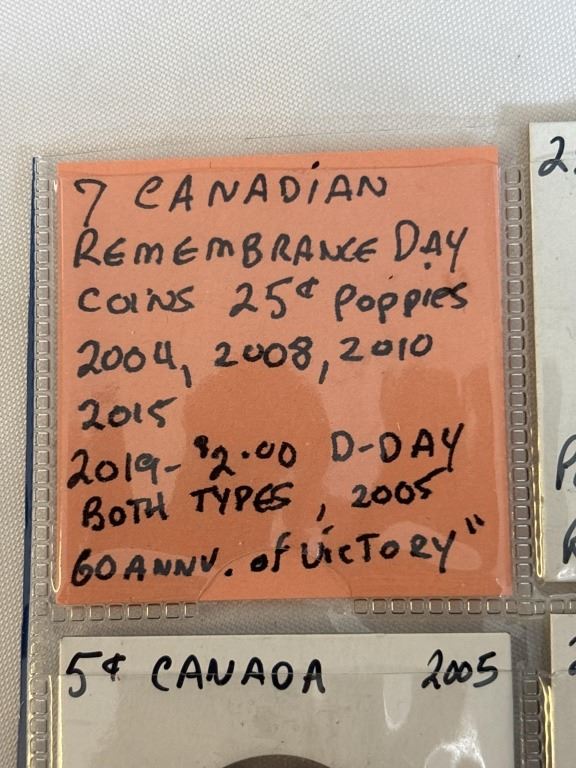 7 CANADIAN
REMEMBRANCE DAY
COINS 25¢ POPPIES
2004, 2008, 2010
2015
2019- $2.00 D-DAY
BOTH TYPES, 2005
60 ANNV. of VICTORY"
5¢ CANADA 2005